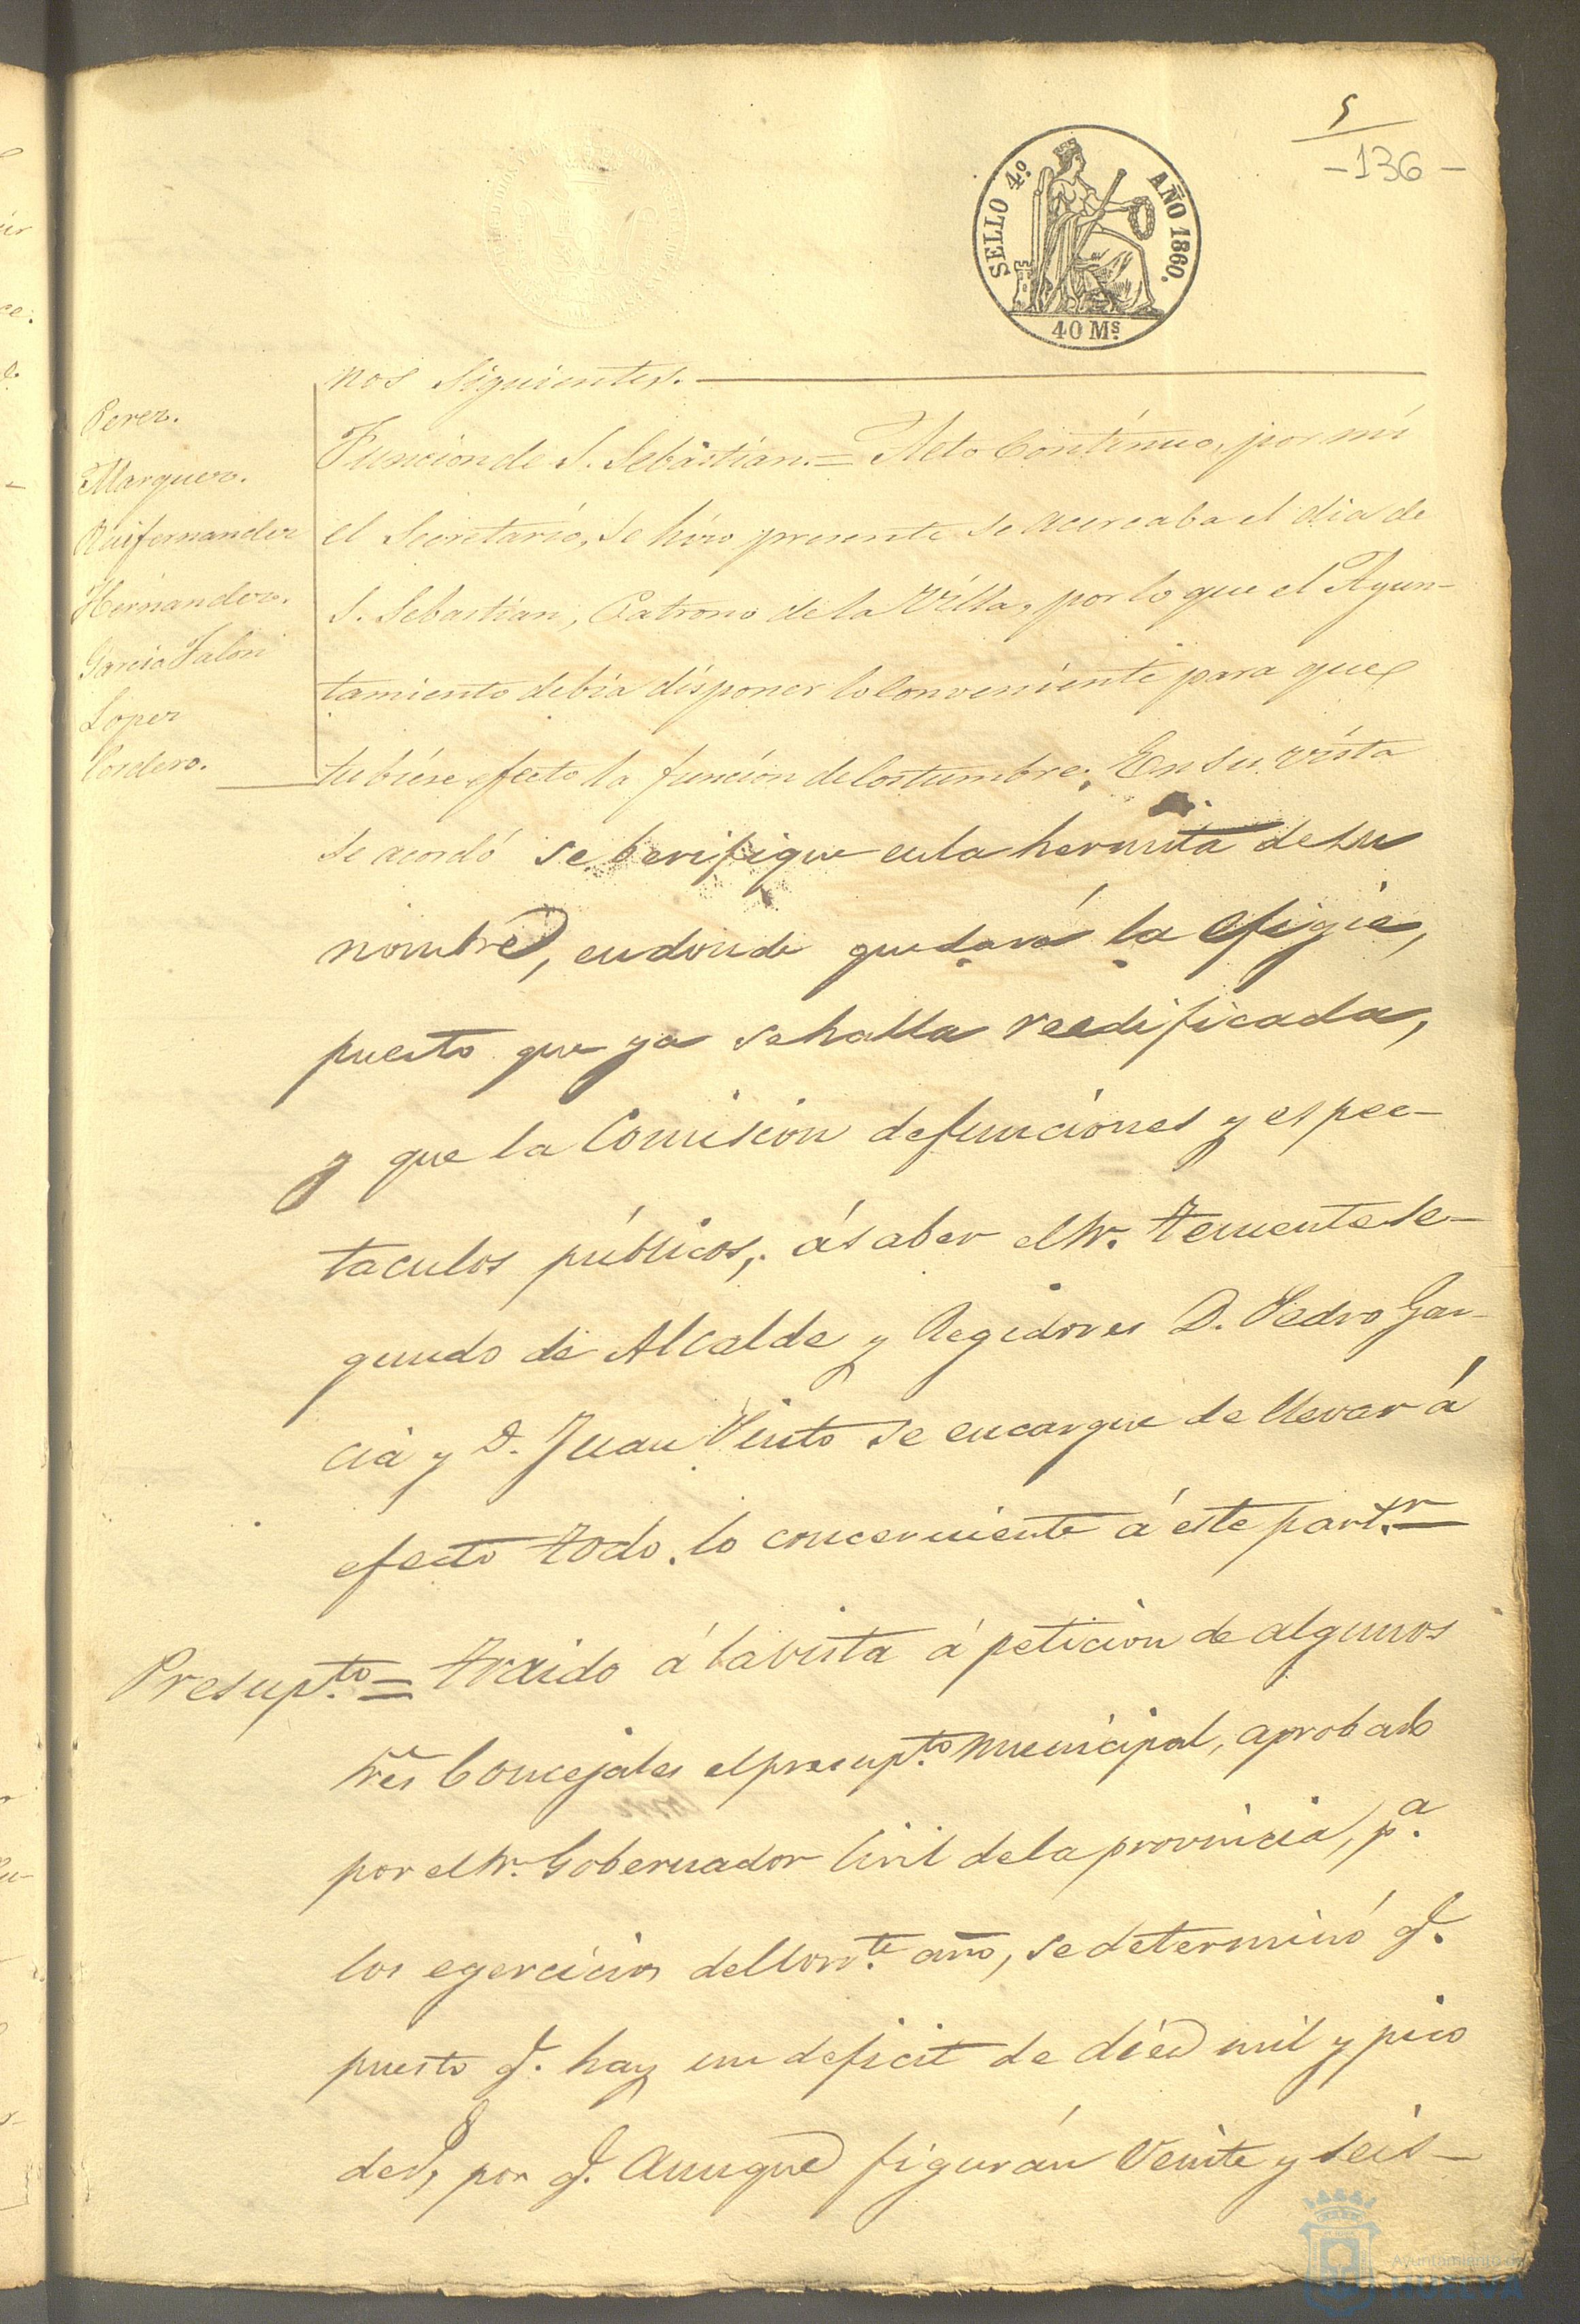 5
-136-
SELLO 4.º AÑO 1860.
40 Ms.
nos siguientes.
Perez.
Marquez.
Ruifernandez
Hernandez.
Garcia Jalon
Lopez
Cordero.
Funcion de S. Sebastian.= Acto Contínuo, por mí
el Secretario, se hizo presente se acercaba el dia de
S. Sebastian, Patrono de la Villa, por lo que el Ayun-
tamiento debia disponer lo Conveniente para que
tubiese efecto la funcion de Costumbre; En su vista
se acordó se berifique en la hermita de su
nombre, en donde quedará la efigie,
puesto que ya se halla reedificada,
y que la Comision de funciones y espec-
taculos públicos, á saber el Sr. Teniente se-
gundo de Alcalde y Regidores D. Pedro Gar-
cia y D. Juan Pinto se encargue de llevar á
efecto todo lo concerniente á este partr.
Presupto.= Traido á la vista á peticion de algunos
Sres Concejales el presupto. municipal, aprobado
por el Sr. Gobernador Civil de la provincia, pa.
los egercicios del Corrte. año, se determinó q.
puesto q. hay un deficit de diez mil y pico
de rs, por q. aunque figurán Veinte y seis-
Ayuntamiento de
HUELVA